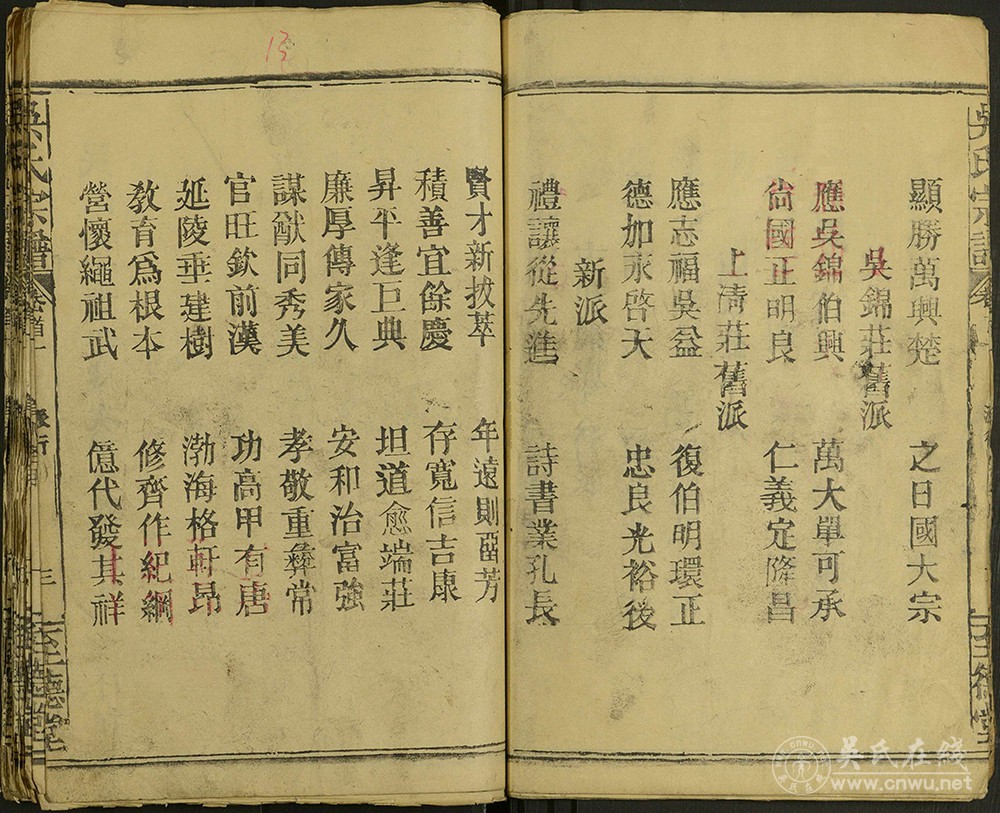 顯勝萬興楚 之日國大宗
吳錦莊舊派
應吳錦伯興 萬大單可承
尙國正明良 仁義定隆昌
上淸莊舊派
應志福吳益 復伯明環正
德加永啓天 忠良光裕後
新派
禮讓從先進 詩書業孔長
賢才新拔萃 年遠則留芳
積善宜餘慶 存寬信吉康
昇平逢巨典 坦道愈端莊
廉厚傳家久 安和治富強
謀猷同秀美 孝敬重彝常
官旺欽前漢 功高甲有唐
延陵垂建樹 渤海格軒昂
敎育爲根本 修齊作紀綱
營懷繩祖武 億代發其祥
吳氏宗譜 卷首上 派行 三 至德堂
吳氏宗譜 至德堂
13
吴氏在线
www.cnwu.net